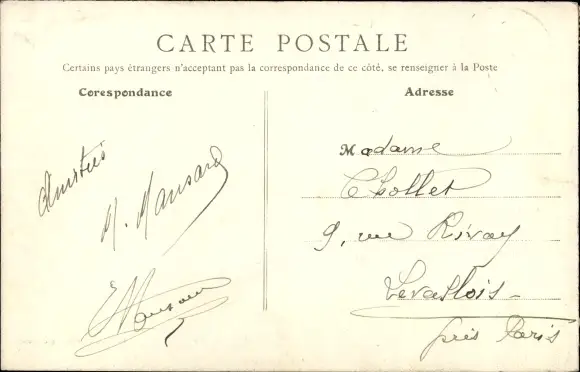 CARTE POSTALE
Certains pays étrangers n'acceptant pas la correspondance de ce côté, se renseigner à la Poste
Corespondance
Amitiés
M. Mansard
Adresse
Madame
Chollet
9, rue Rivay
Levallois-
près Paris